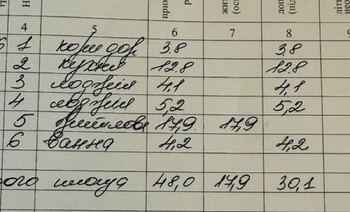 4 5 6 7 8
1 коридор 3.8 3.8
2 кухня 12.8 12.8
3 лоджия 4,1 4,1
4 лоджия 5,2 5,2
5 житлова 17,9 17,9
6 ванна 4,2 4,2
ого площа 48,0 17,9 30,1